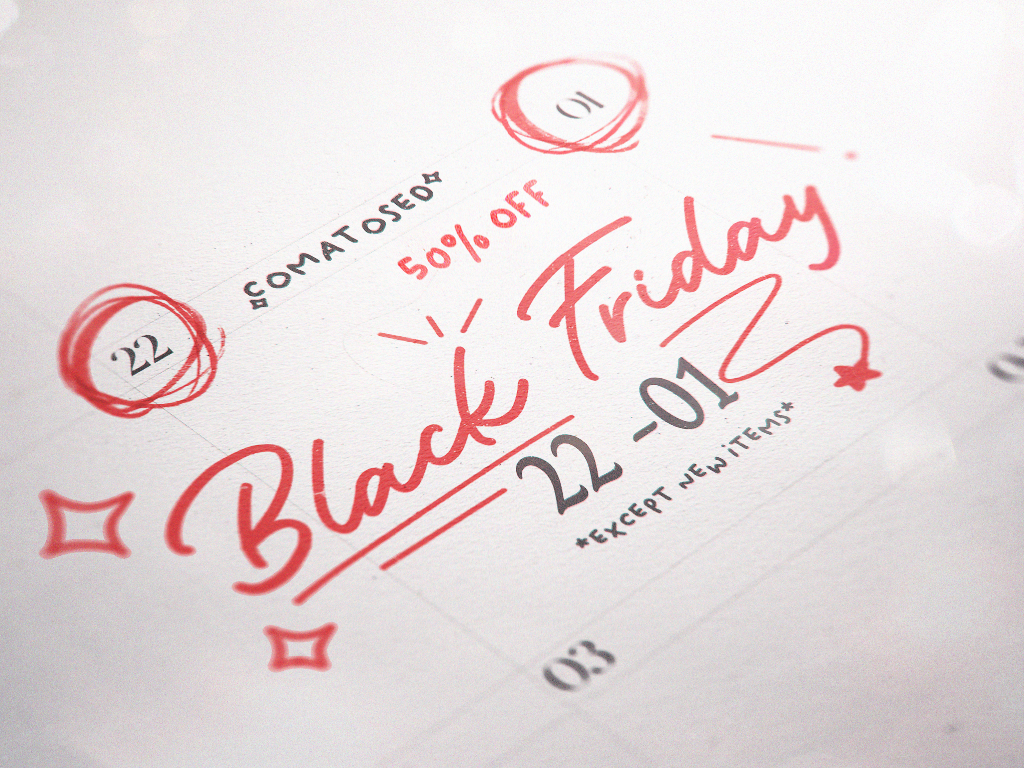 01
22
COMATOSED
50% OFF
Black Friday
22 - 01
*EXCEPT NEW iTEMS*
03